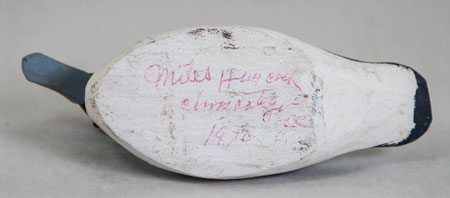 Miles Hancock
Chincoteague
VA
1970